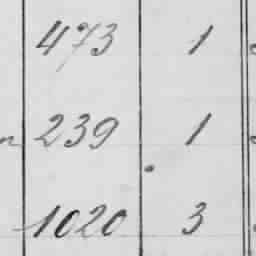 473 1
239 1
1020 3